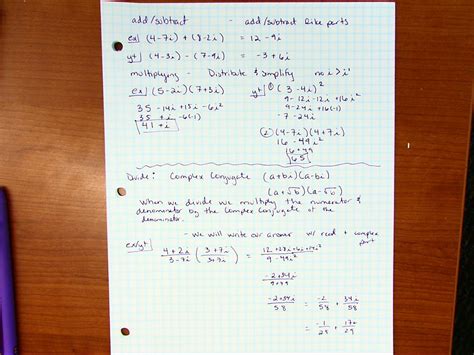 add/subtract - add/subtract like parts
ex) (4-7i) + (8-2i) = 12 - 9i
yt) (4-3i) - (7-9i) = -3 + 6i
multiplying - Distribute & simplify no i > i¹
ex) (5-2i)(7+3i)
35 - 14i + 15i - 6i²
35 + i - 6(-1)
41 + i
yt) ① (3-4i)²
9 - 12i - 12i + 16i²
9 - 24i + 16(-1)
-7 - 24i
② (4-7i)(4+7i)
16 - 49i²
16 + 49
65
Divide: Complex Conjugate (a+bi)(a-bi)
(a+√b)(a-√b)
When we divide we multiply the numerator &
denominator by the Complex Conjugate of the
denominator.
- we will write our answer w/ real + complex
part
ex/yt) (4+2i)/(3-7i) ((3+7i)/(3+7i)) = (12+28i+6i+14i²)/(9-49i²)
(-2+34i)/(9+49)
(-2+34i)/58 = -2/58 + 34i/58
= -1/29 + 17i/29